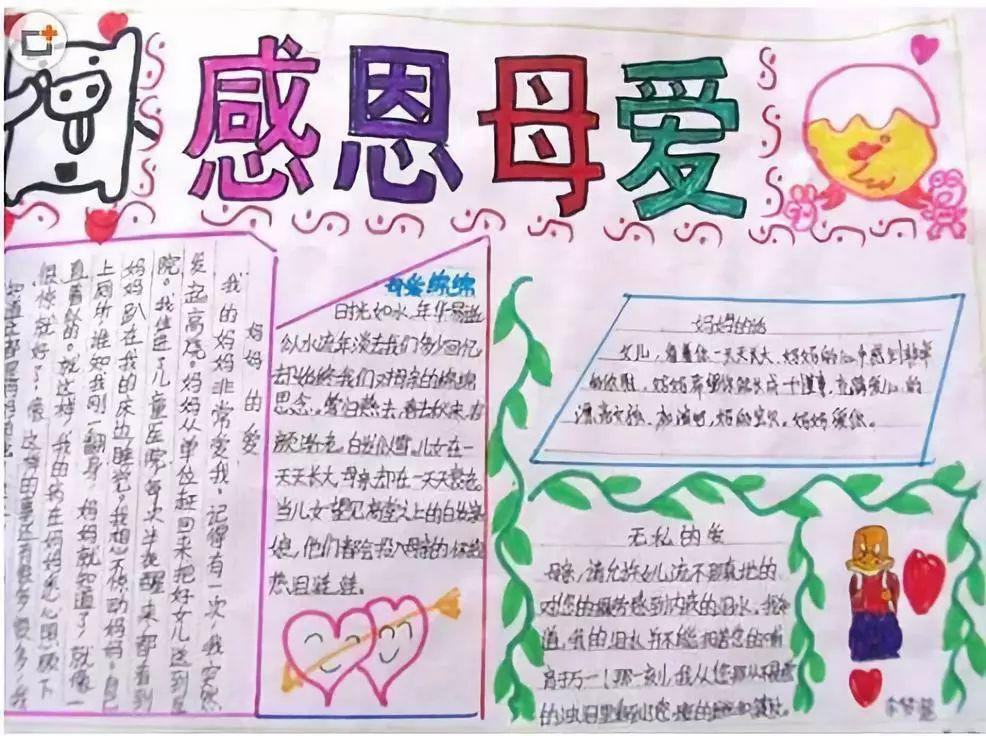 感恩母爱
妈妈的爱
我的妈妈非常爱我。记得有一次,我突然
发起高烧。妈妈从单位赶回来把好女儿送到医
院。我住进了儿童医院,每次半夜醒来,都看到
妈妈趴在我的床边睡觉。我想不惊动妈妈,自己
上厕所,谁知我刚一翻身,妈妈就知道了,就像一
直看似的。就这样,我的病在妈妈悉心照顾下
很快就好了,像这样的事还有很多很多,我
母爱绵绵
时光如水,年华易逝
似水流年淡去我们多少回忆
却始终我们对母亲的绵绵
思念。暑归熟去,春去秋来,
颜渐老,白发似雪。儿女在一
天天长大,母亲却在一天天憨老。
当儿女望见高堂之上的白发亲
娘,他们都会投入母亲的怀抱
热泪
妈妈的话
女儿,看着你一天天长大,妈妈的心中感到非常
的欣慰,妈妈希望你能长成一个健康,充满爱心的
漂亮女孩,加油吧,妈的宝贝,妈妈爱你。
无私的爱
母亲,请允许女儿流不那真地的
对您的服务感到内疚的泪水,我知
道,我的泪水并不能报答您的哺
育于万一!那一刻,我从您那从
的浊泪里